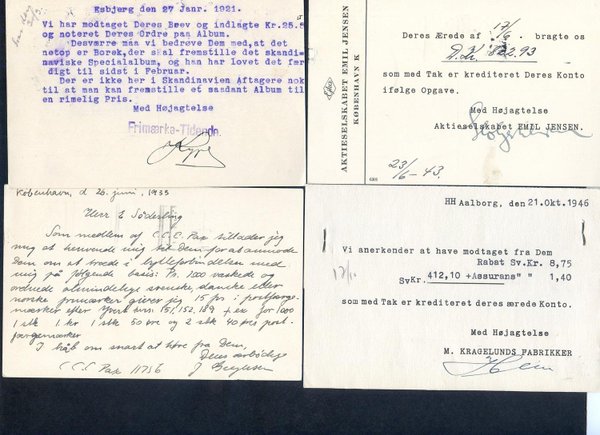 Esbjerg den 27 Janr. 1921.
Vi har modtaget Deres Brev og indlagte Kr.25.5
og noteret Deres Ordre paa Album.
Desværre maa vi bedrøve Dem med, at det
netop er Borek, der skal fremstille det skandi-
naviske Specialalbum, og han har lovet det fær
digt til sidst i Februar.
Der er ikke her i Skandinavien Aftagere nok
til at man kan fremstille et saadant Album til
en rimelig Pris.
Med Højagtelse
Frimærke-Tidende.
AKTIESELSKABET EMIL JENSEN
KØBENHAVN K
Deres Ærede af 17/6 bragte os
D. Kr. 822.93
som med Tak er krediteret Deres Konto
ifølge Opgave.
Med Højagtelse
Aktieselskabet EMIL JENSEN.
23/6-43.
København, d 26. juni, 1935
Herr E Söderling
Som medlem af C.C.C. Pax tillader jeg
mig at henvende mig til Dem for at anmode
Dem om at træde i bytteforbindelse med
mig på følgende basis: Pr. 1000 vaskede og
ordnede almindelige svenske, danske eller
norske frimærker giver jeg 15 fr. i postfærge-
mærker efter Yvert nrs. 151, 152, 189 + ex. for 1000
1 stk 1 kr 1 stk 50 øre og 2 stk 40 øres post-
færgemærker
I håb om snart at høre fra Dem,
Deres ærbødige
C.C.C. Pax 11756
HH Aalborg, den 21.Okt.1946
Vi anerkender at have modtaget fra Dem
Rabat Sv.Kr. 8,75
SvKr. 412,10 +Assurans" " 1,40
som med Tak er krediteret deres ærede Konto.
Med Højagtelse
M. KRAGELUNDS FABRIKKER